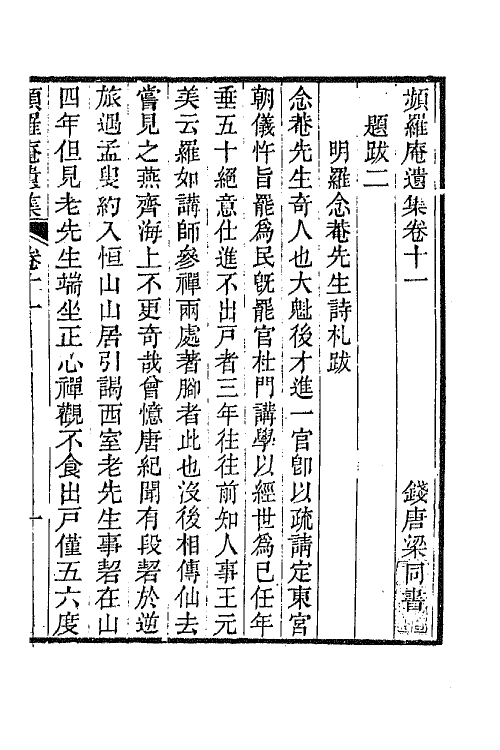 頻羅庵遺集卷十一
錢唐梁同書
題跋二
明羅念菴先生詩札跋
念菴先生奇人也大魁後才進一官卽以疏請定東宮
朝儀忤旨罷爲民旣罷官杜門講學以經世爲已任年
垂五十絕意仕進不出戸者三年往往前知人事王元
美云羅如講師參禪兩處著腳者此也沒後相傳仙去
嘗見之燕齊海上不更奇哉曾憶唐紀聞有段䂮於逆
旅遇孟叟約入恒山山居引謁西室老先生事䂮在山
四年但見老先生端坐正心禪觀不食出戸僅五六度
頻羅庵遺集
卷十一
一